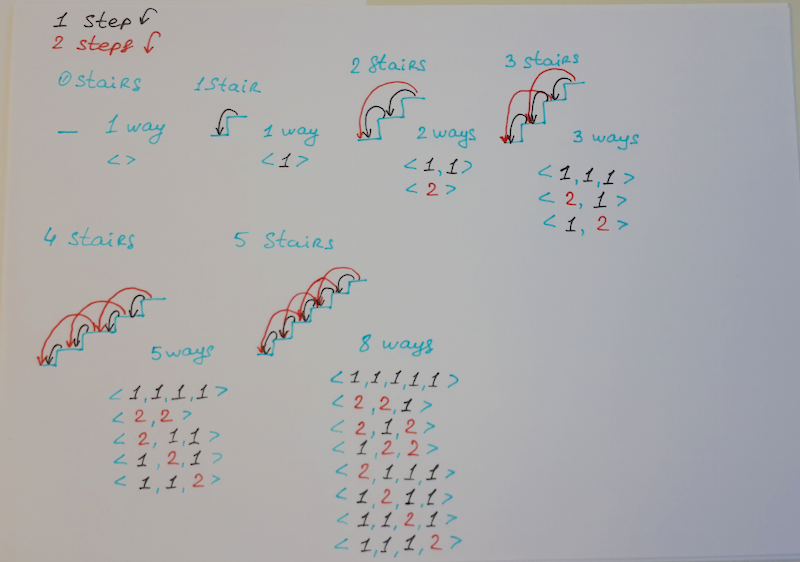 1 step
2 steps
0 stairs
1 way
< >
1 stair
1 way
< 1 >
2 stairs
2 ways
< 1, 1 >
< 2 >
3 stairs
3 ways
< 1, 1, 1 >
< 2, 1 >
< 1, 2 >
4 stairs
5 ways
< 1, 1, 1, 1 >
< 2, 2 >
< 2, 1 1 >
< 1, 2, 1 >
< 1, 1, 2 >
5 stairs
8 ways
< 1, 1, 1, 1, 1 >
< 2, 2, 1 >
< 2, 1, 2 >
< 1, 2, 2 >
< 2, 1, 1, 1 >
< 1, 2, 1, 1 >
< 1, 1, 2, 1 >
< 1, 1, 1, 2 >